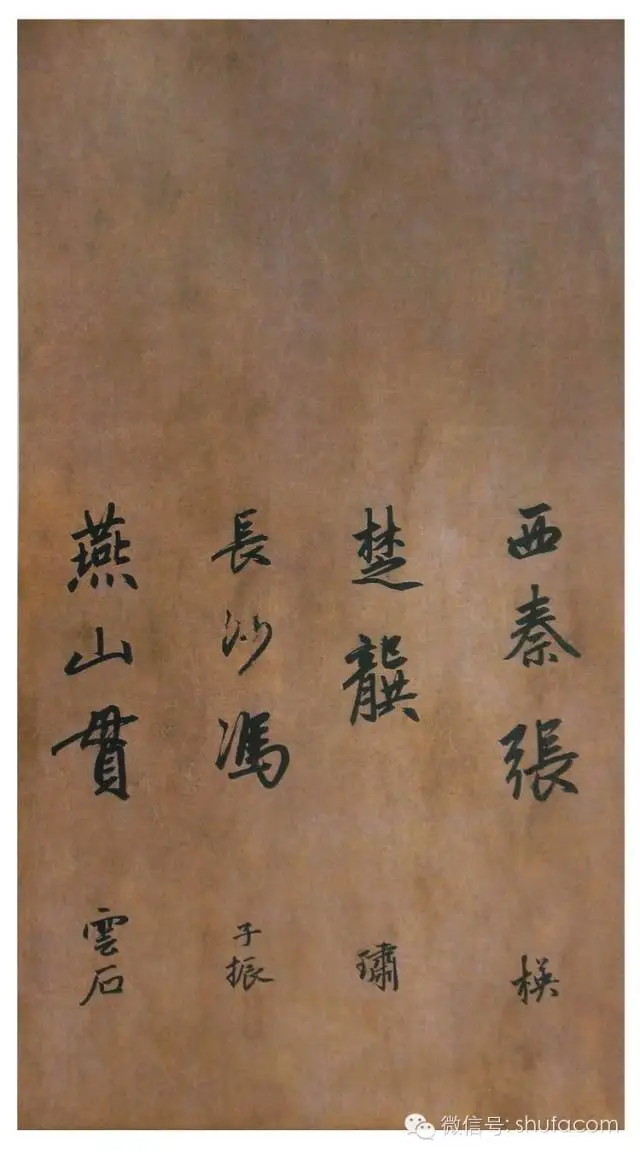 西秦張 楧
楚龔 璛
長沙馮 子振
燕山貫 雲石
微信号: shufacom